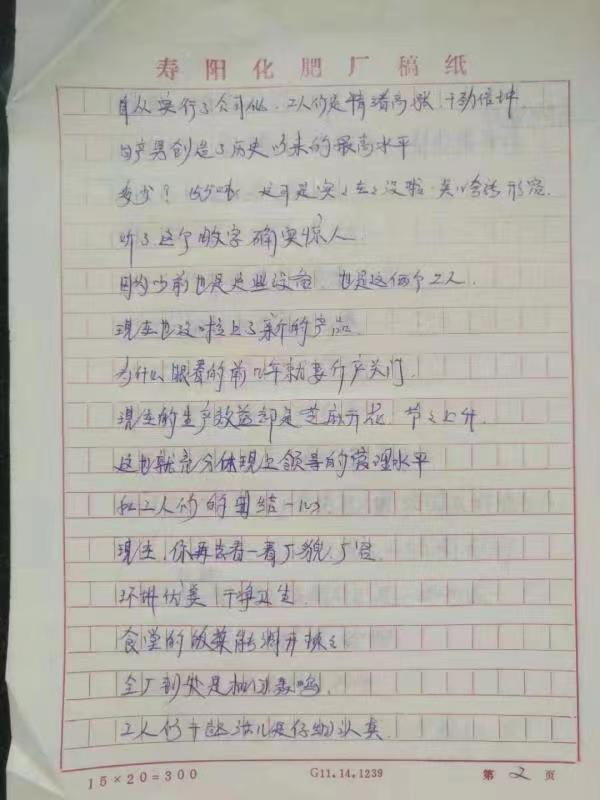 寿阳化肥厂稿纸
自从实行了公司化，工人们是情绪高涨，干劲倍增
日产量创造了历史以来的最高水平
多少？
听了这个数字确实惊人
因为以前也是这些设备，也是这俩个工人
现在也没啥上了新的产品
为什么眼看的前几年就要停产关门
现在的生产效益却是芝麻开花，节之上升
这也就充分体现上领导的管理水平
和工人们的团结一心
现在，你再去看一看厂貌，厂容
环境优美，干净卫生
食堂的饭菜
全厂到处是机器轰鸣
工人们干起活儿是仔细认真
15×20=300 G11.14.1239 第2页